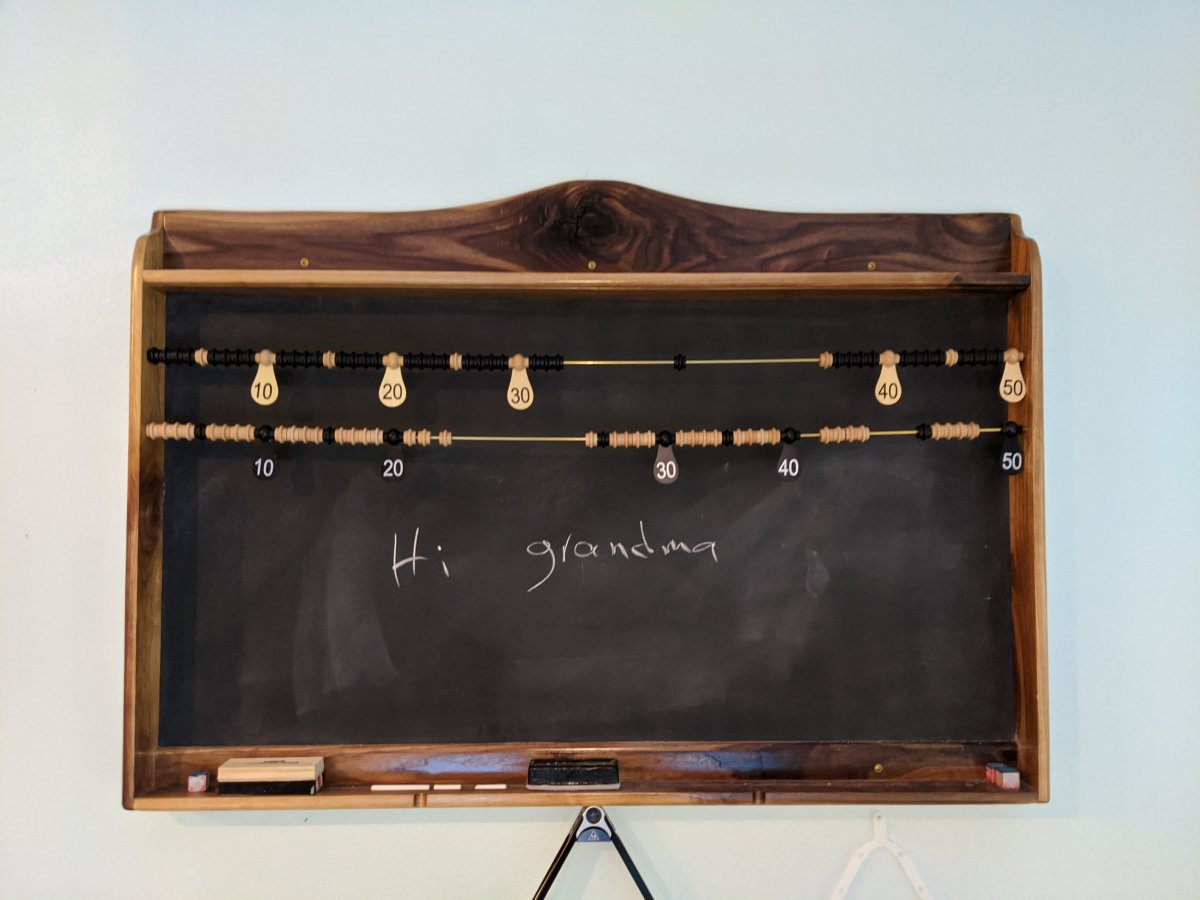 10 20 30 40 50
10 20 30 40 50
Hi grandma